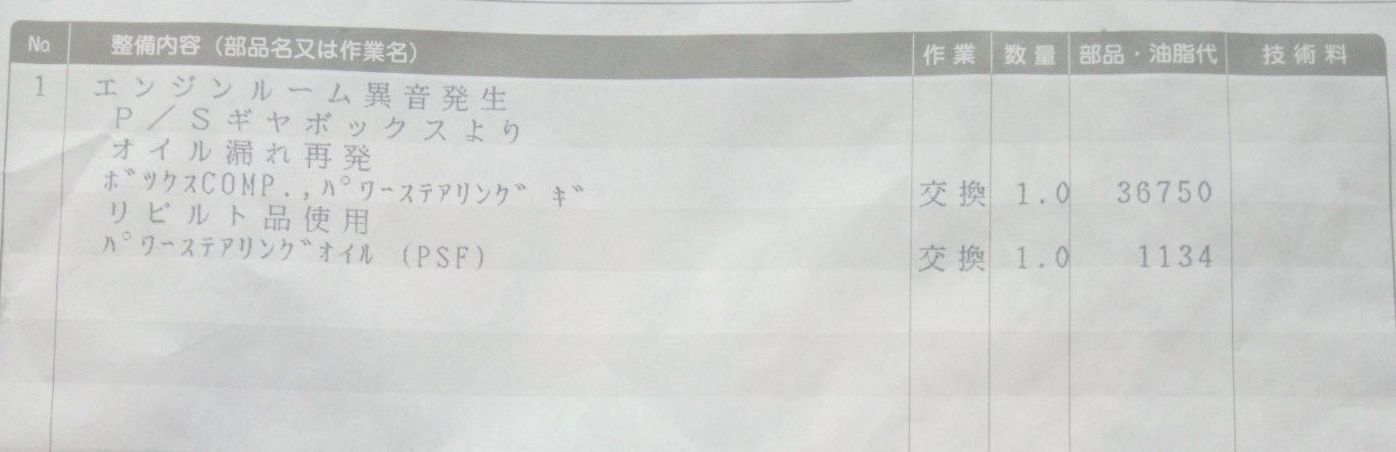 No 整備内容（部品名又は作業名） 作業 数量 部品・油脂代 技術料
1 エンジンルーム異音発生
P／Sギヤボックスより
オイル漏れ再発
ﾎﾞﾂｸｽCOMP.,ﾊﾟﾜｰｽﾃｱﾘﾝｸﾞ ｷﾞ 交換 1.0 36750
リビルト品使用
ﾊﾟﾜｰｽﾃｱﾘﾝｸﾞｵｲﾙ (PSF) 交換 1.0 1134